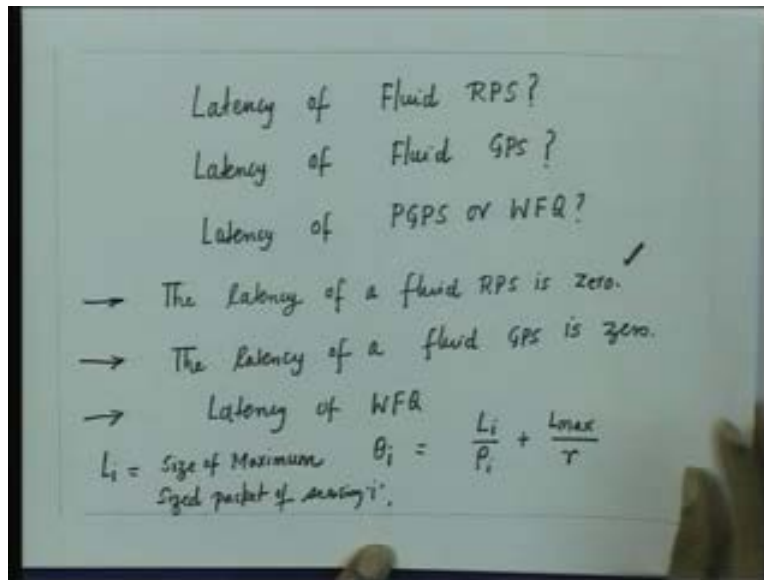 Latency of Fluid RPS?
Latency of Fluid GPS?
Latency of PGPS or WFQ?
→ The latency of a fluid RPS is zero. ✓
→ The latency of a fluid GPS is zero.
→ Latency of WFQ
θi = Li/ρi + Lmax/r
Li = Size of Maximum
Sized packet of session 'i'.